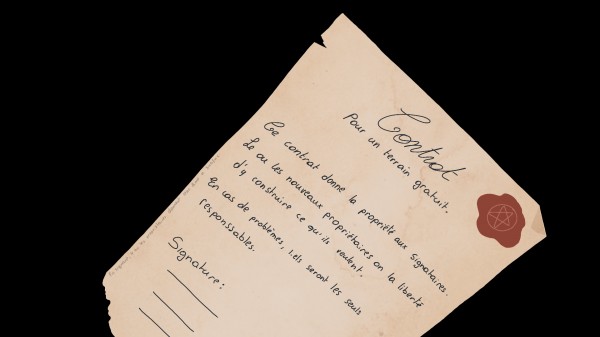 Contrat
Pour un terrain gratuit.
Ce contrat donne la propriété aux signataires.
Le ou les nouveaux propriétaires on la liberté
d'y construire ce qu'ils veulent.
En cas de problèmes, i.els seront les seuls
responssables.
Signature: